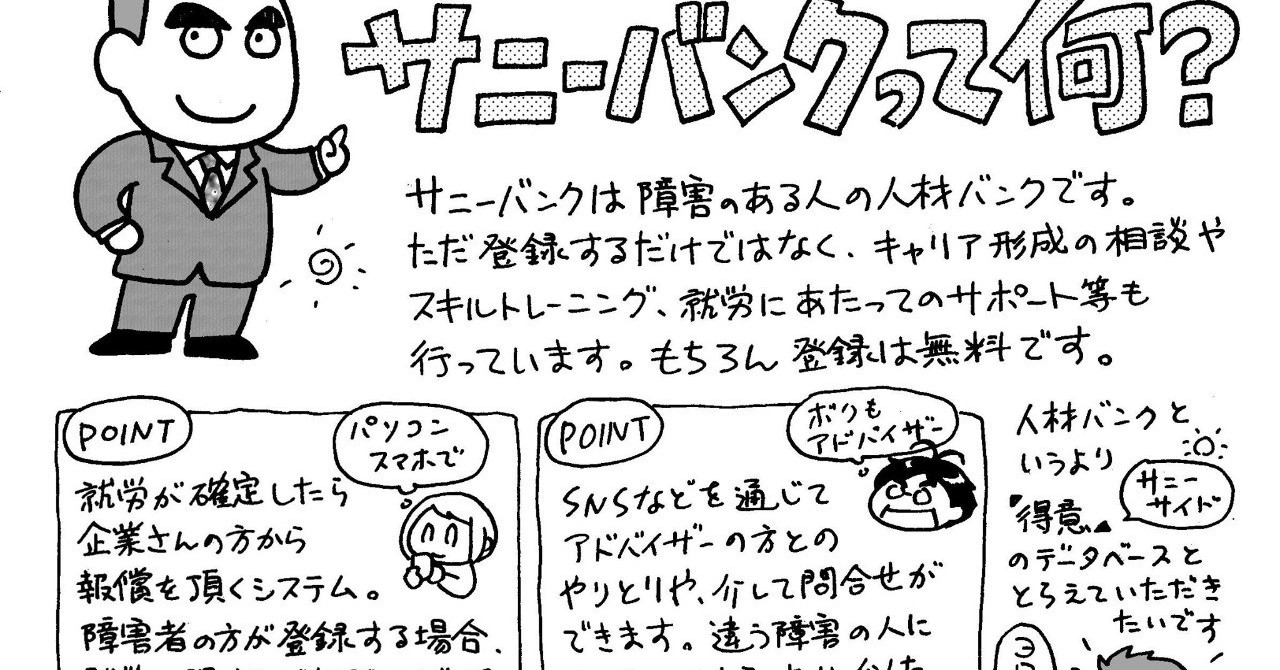 サニーバンクって何?
サニーバンクは障害のある人の人材バンクです。
ただ登録するだけではなく、キャリア形成の相談や
スキルトレーニング、就労にあたってのサポート等も
行っています。もちろん登録は無料です。
POINT
パソコン
スマホで
就労が確定したら
企業さんの方から
報償を頂くシステム。
障害者の方が登録する場合、
POINT
ボクも
アドバイザー
SNSなどを通じて
アドバイザーの方との
やりとりや、介して問合せが
できます。違う障害の人に
人材バンクと
いうより
サニー
サイド
『得意』
のデータベースと
とらえていただき
たいです